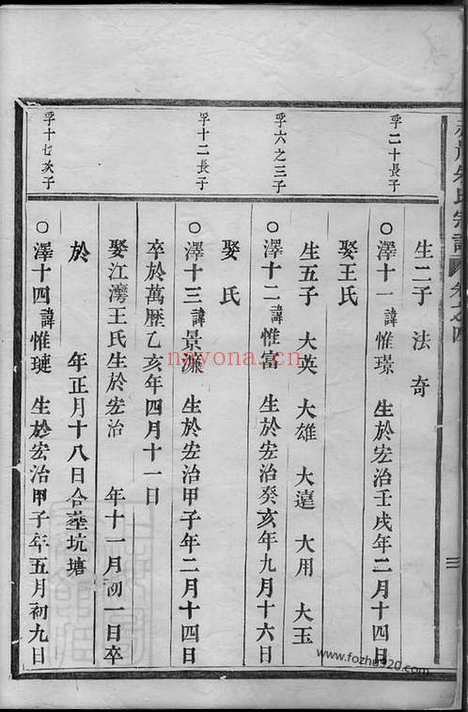 朱氏宗譜 卷之四
三
生二子 法 奇
孚二十長子
○澤十一諱惟璟 生於宏治壬戌年二月十四日
娶王氏
生五子 大英 大雄 大遠 大用 大玉
孚六之三子
○澤十二諱惟富 生於宏治癸亥年九月十六日
娶 氏
孚十二長子
○澤十三諱景濂 生於宏治甲子年二月十四日
卒於萬歷乙亥年四月十一日
娶江灣王氏生於宏治 年十一月初一日卒
於 年正月十八日合葬坑塘
孚十七次子
○澤十四諱惟璉 生於宏治甲子年五月初九日
nayona.cn
www.fozhu920.com